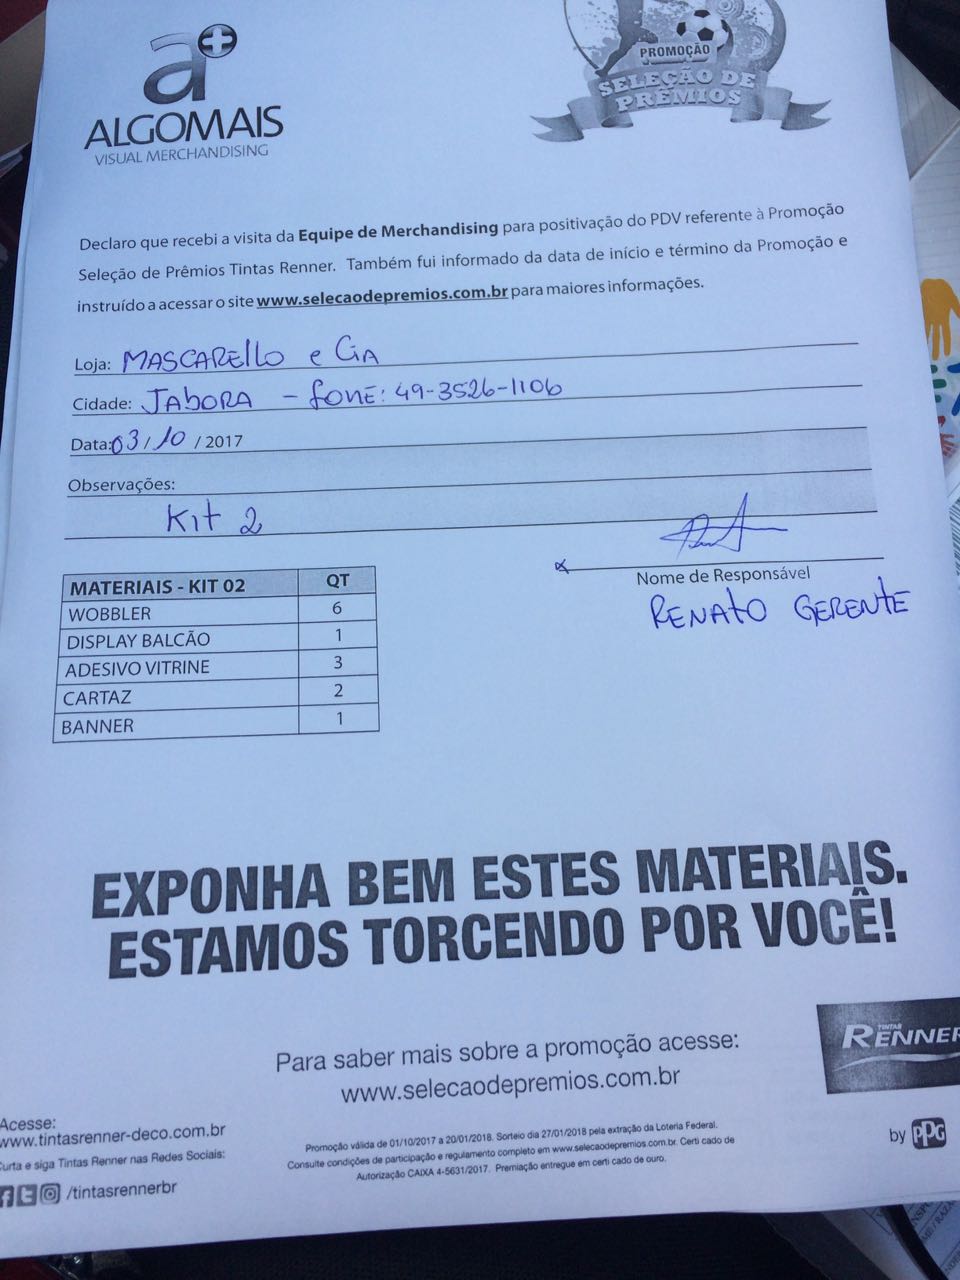 a+
ALGOMAIS
VISUAL MERCHANDISING
PROMOÇÃO
SELEÇÃO DE
PRÊMIOS
Declaro que recebi a visita da Equipe de Merchandising para positivação do PDV referente à Promoção
Seleção de Prêmios Tintas Renner. Também fui informado da data de início e término da Promoção e
instruído a acessar o site www.selecaodepremios.com.br para maiores informações.
Loja: MASCARELLO e CIA
Cidade: JABORA - fone: 49-3526-1106
Data: 03/10/2017
Observações:
Kit 2
Nome de Responsável
RENATO GERENTE
MATERIAIS - KIT 02 QT
WOBBLER 6
DISPLAY BALCÃO 1
ADESIVO VITRINE 3
CARTAZ 2
BANNER 1
EXPONHA BEM ESTES MATERIAIS.
ESTAMOS TORCENDO POR VOCÊ!
Para saber mais sobre a promoção acesse:
www.selecaodepremios.com.br
TINTAS
RENNER
Acesse:
www.tintasrenner-deco.com.br
Curta e siga Tintas Renner nas Redes Sociais:
/tintasrennerbr
Promoção válida de 01/10/2017 a 20/01/2018. Sorteio dia 27/01/2018 pela extração da Loteria Federal.
Consulte condições de participação e regulamento completo em www.selecaodepremios.com.br. Certi cado de
Autorização CAIXA 4-5631/2017. Premiação entregue em certi cado de ouro.
by PPG